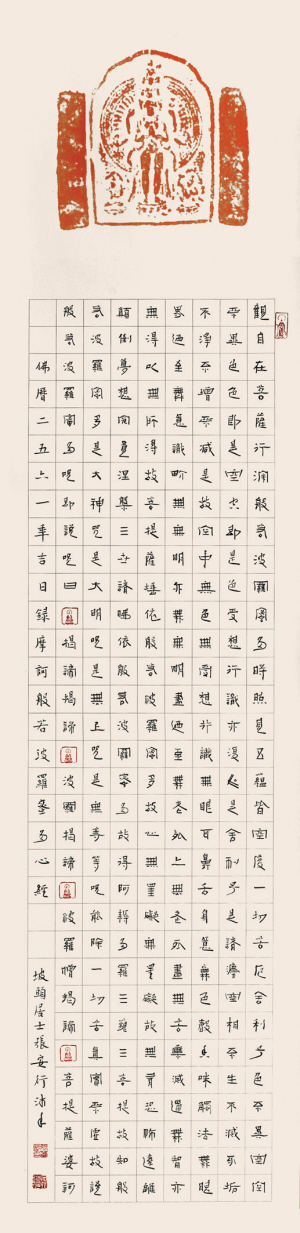 觀自在菩薩行深般若波羅蜜多時照見五蘊皆空度一切苦厄舍利子色不異空空
不異色色即是空空即是色受想行識亦復如是舍利子是諸法空相不生不滅不垢
不淨不增不減是故空中無色無受想行識無眼耳鼻舌身意無色聲香味觸法無眼
界乃至無意識界無無明亦無無明盡乃至無老死亦無老死盡無苦集滅道無智亦
無得以無所得故菩提薩埵依般若波羅蜜多故心無罣礙無罣礙故無有恐怖遠離
顛倒夢想究竟涅槃三世諸佛依般若波羅蜜多故得阿耨多羅三藐三菩提故知般
若波羅蜜多是大神咒是大明咒是無上咒是無等等咒能除一切苦真實不虛故說
般若波羅蜜多咒即說咒曰揭諦揭諦波羅揭諦波羅僧揭諦菩提薩婆訶
佛曆二五六一年吉日錄摩訶般若波羅蜜多心經
坡頭居士張安行沐手